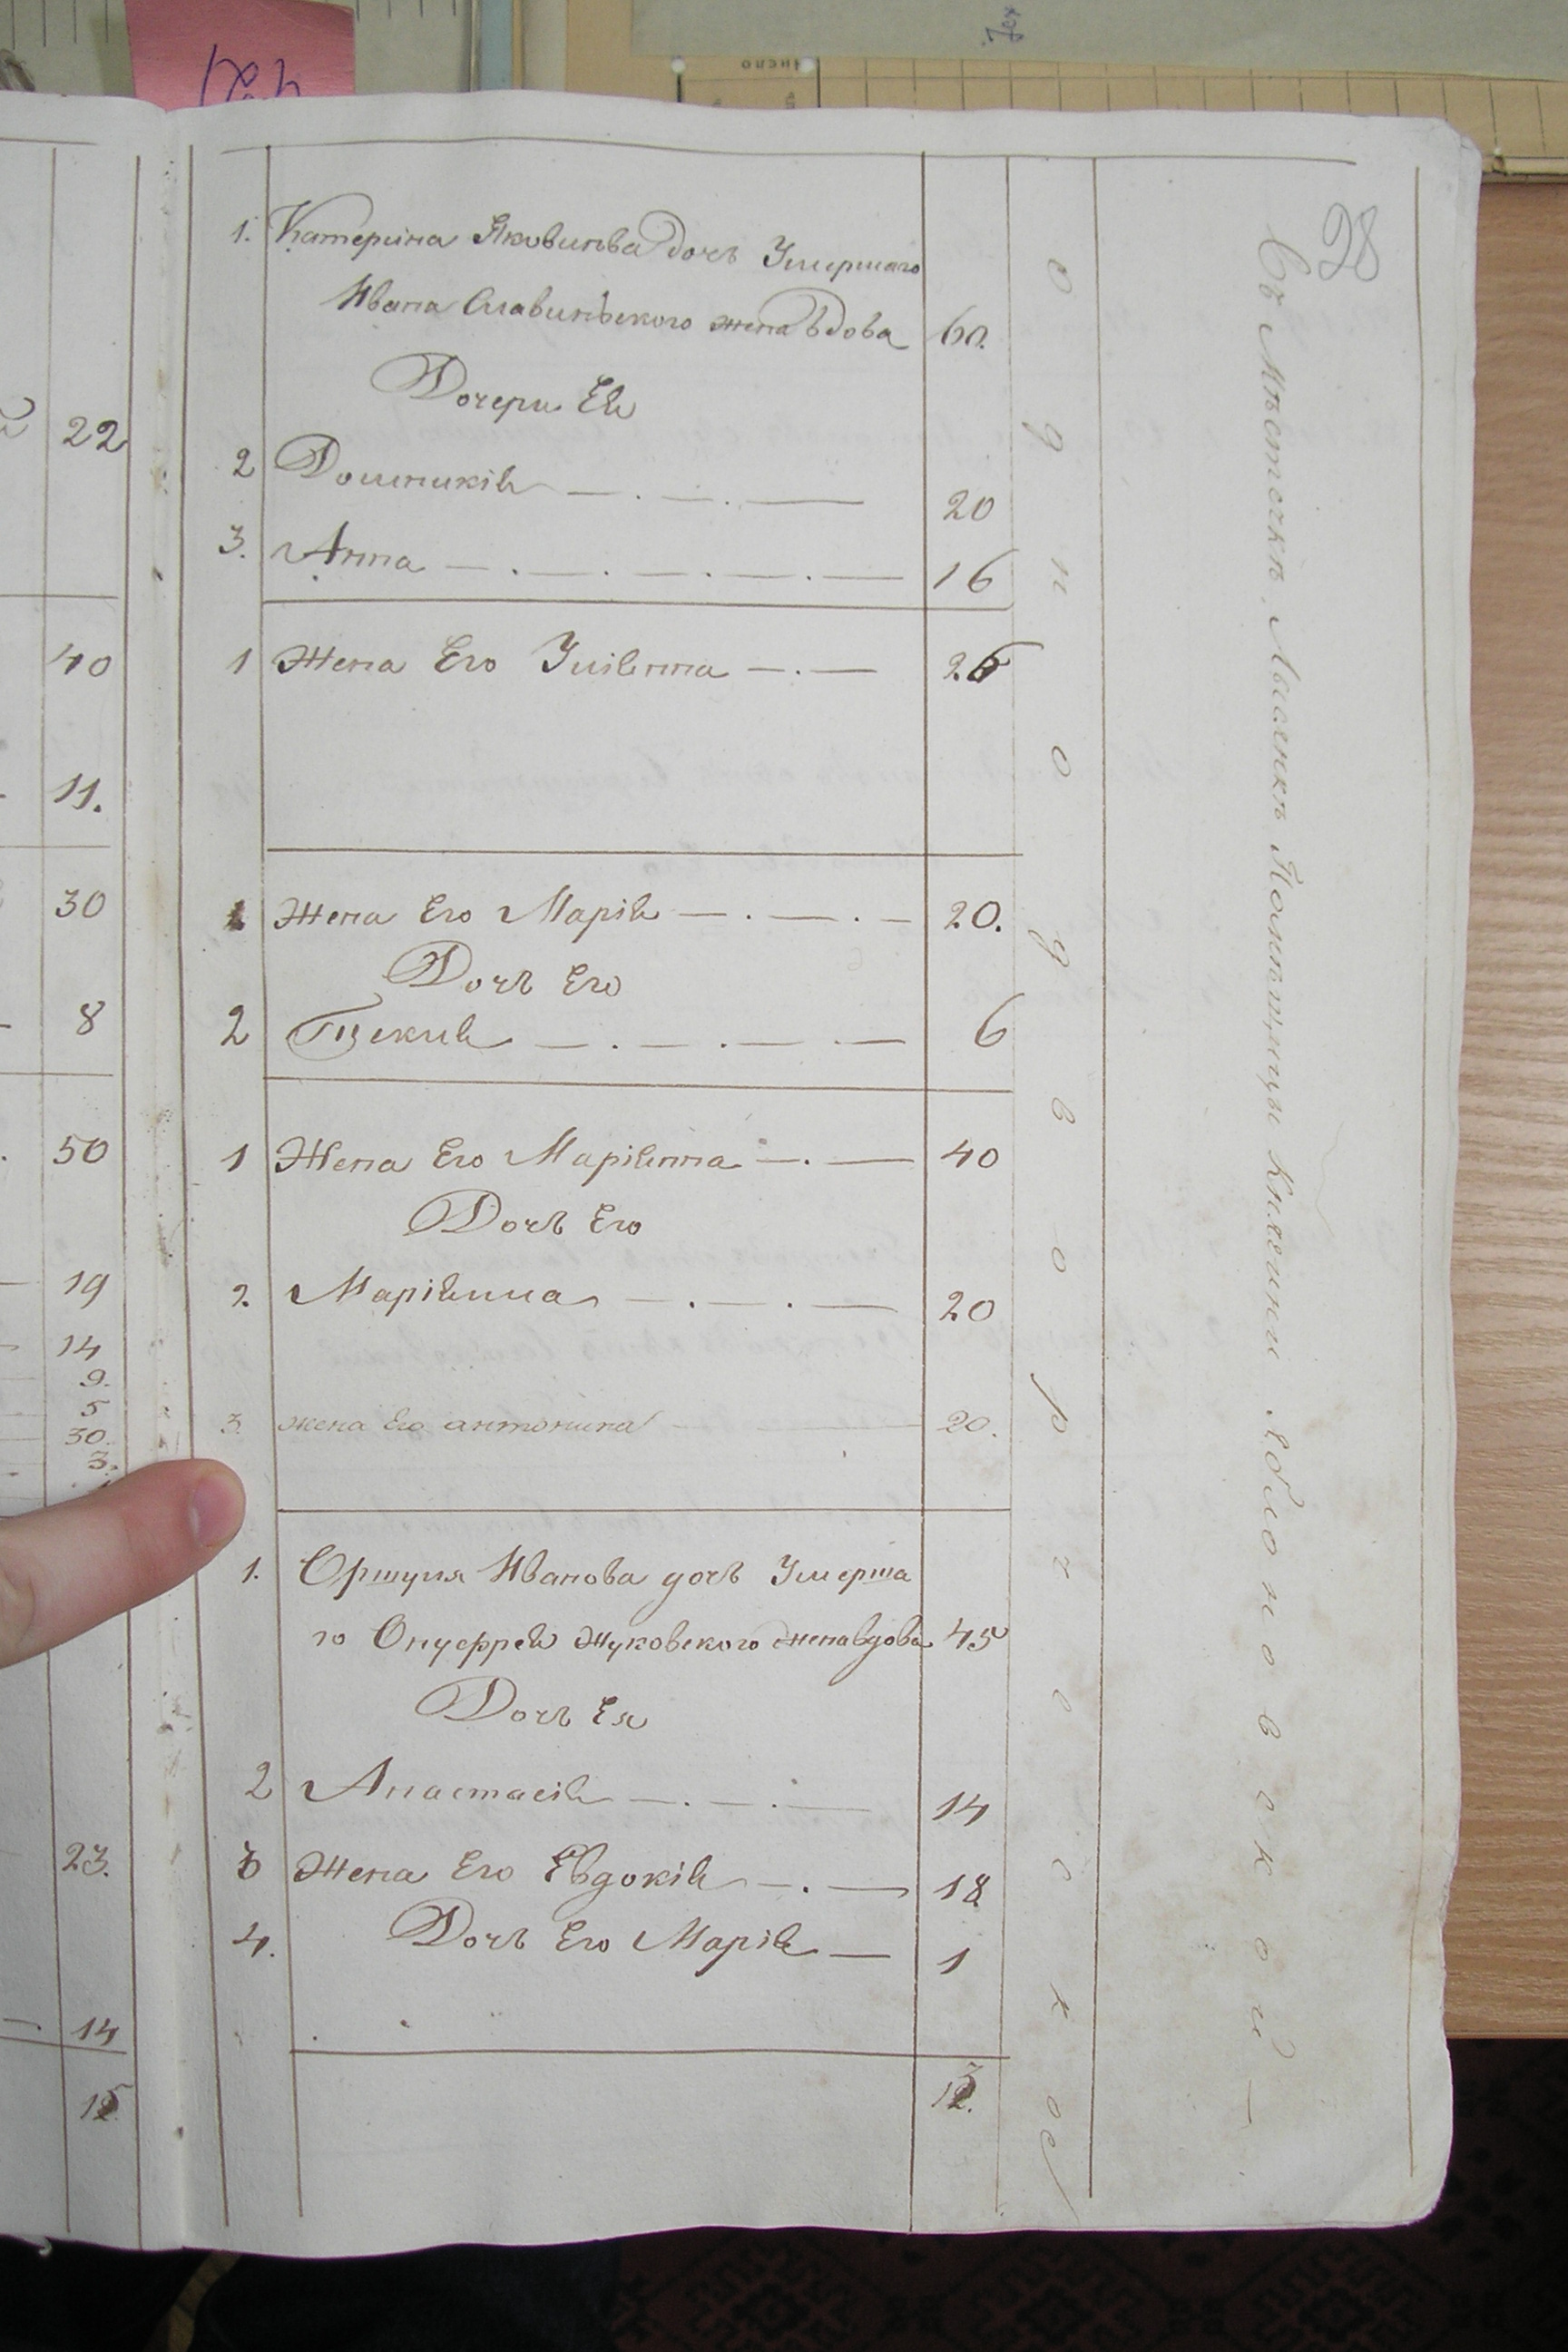 98
22
40
11.
30
8
50
19
14
9.
5
30.
3.
23.
14
15
1. Катерина Яковлѣва дочь Умершаго
Ивана Славинскаго жена вдова 60.
Дочери Ея
2 Доминикія 20
3. Анна 16
1 Жена Его Уліянна 26
1 Жена Его Марія 20.
Дочь Его
2 Текля 6
1 Жена Его Маріянна 40
Дочь Его
2. Маріянна 20
3. жена Его антонина 20.
1. Оршуля Иванова дочь Умерша
го Онуфрея Жуковского жена вдова 45
Дочь Ея
2 Анастасія 14
3 Жена Его Евдокія 18
4. Дочь Его Марія 1
13.
однодворческое
Въ Мѣстечкѣ Лысянкѣ Помѣщицы Княгини Яблоновской